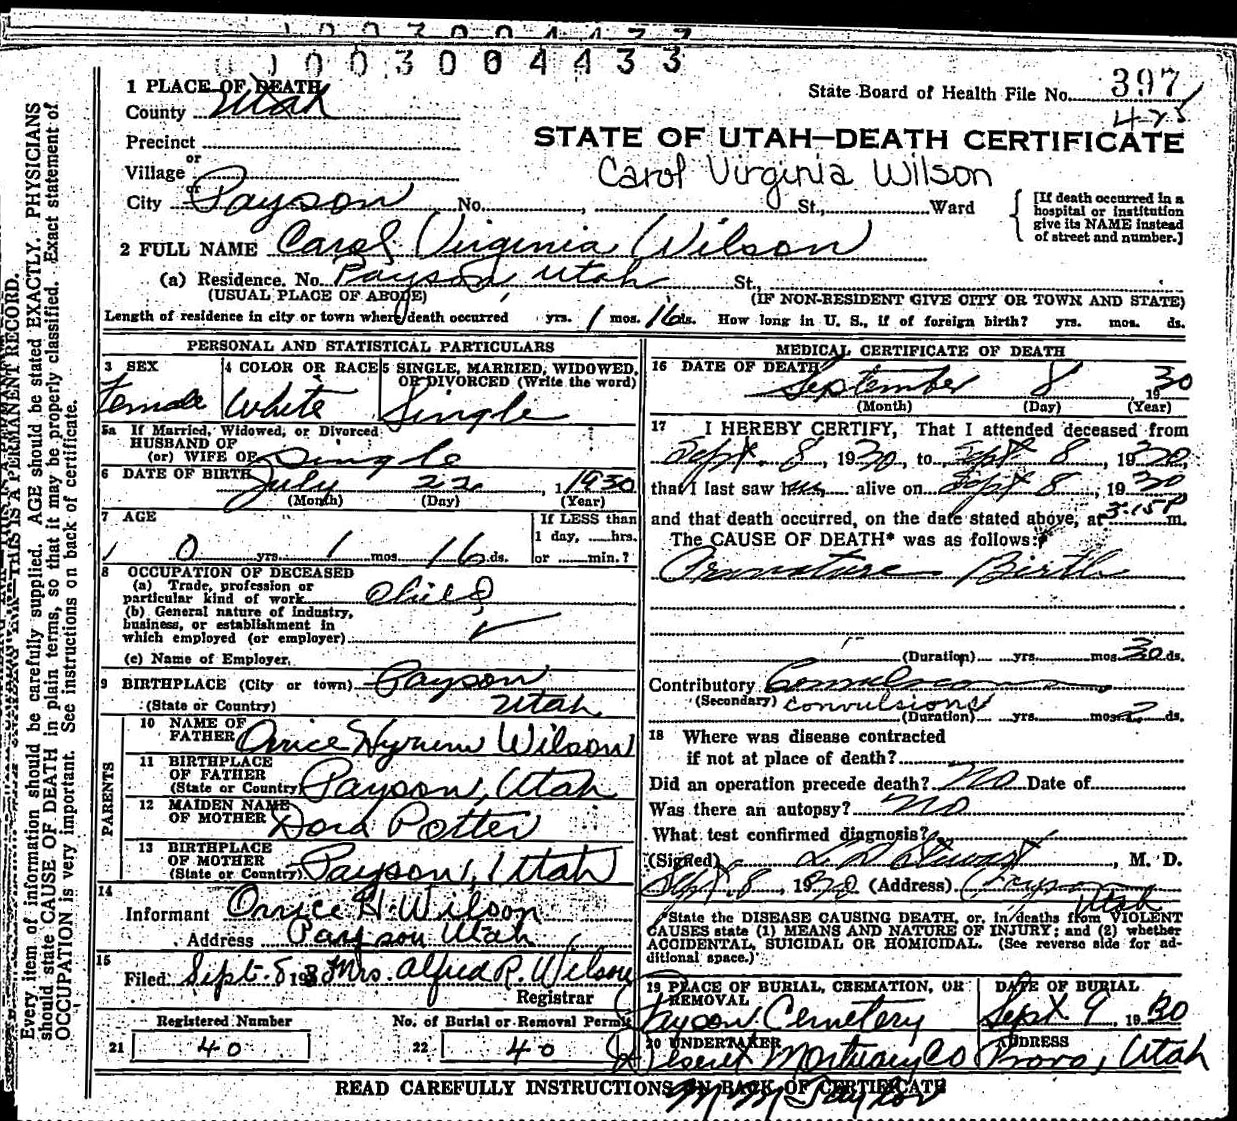 1003004433
1 PLACE OF DEATH
County Utah
State Board of Health File No. 397
425
Precinct
STATE OF UTAH—DEATH CERTIFICATE
or
Village
Carol Virginia Wilson
or
City Payson No. , St., Ward
[If death occurred in a
hospital or institution
give its NAME instead
of street and number.]
2 FULL NAME Carol Virginia Wilson
(a) Residence. No. Payson, Utah St.,
(USUAL PLACE OF ABODE) (IF NON-RESIDENT GIVE CITY OR TOWN AND STATE)
Length of residence in city or town where death occurred yrs. 1 mos. 16 ds. How long in U. S., if of foreign birth? yrs. mos. ds.
PERSONAL AND STATISTICAL PARTICULARS
3 SEX 4 COLOR OR RACE 5 SINGLE, MARRIED, WIDOWED,
OR DIVORCED (Write the word)
Female White Single
5a If Married, Widowed, or Divorced
HUSBAND OF
(or) WIFE OF Single
6 DATE OF BIRTH July 22, 1930
(Month) (Day) (Year)
7 AGE If LESS than
1 day, hrs.
0 yrs. 1 mos. 16 ds. or min.?
8 OCCUPATION OF DECEASED
(a) Trade, profession or
particular kind of work Child
(b) General nature of industry,
business, or establishment in
which employed (or employer)
(c) Name of Employer.
9 BIRTHPLACE (City or town) Payson
(State or Country) Utah
PARENTS
10 NAME OF
FATHER Orrice Hyrum Wilson
11 BIRTHPLACE
OF FATHER
(State or Country) Payson, Utah
12 MAIDEN NAME
OF MOTHER Dora Potter
13 BIRTHPLACE
OF MOTHER
(State or Country) Payson, Utah
14
Informant Orrice H. Wilson
Address Payson Utah
15
Filed Sept. 8 1930 Mrs. Alfred R. Wilson
Registrar
Registered Number No. of Burial or Removal Permit
21 40 22 40
MEDICAL CERTIFICATE OF DEATH
16 DATE OF DEATH September 8 1930
(Month) (Day) (Year)
17 I HEREBY CERTIFY, That I attended deceased from
Sept. 8, 1930, to Sept 8, 1930,
that I last saw h alive on Sept 8, 1930
and that death occurred, on the date stated above, at 3:15 P m.
The CAUSE OF DEATH* was as follows:
Premature Birth
(Duration) yrs. mos. 30 ds.
Contributory Convulsions
(Secondary) convulsions
(Duration) yrs. mos. 2 ds.
18 Where was disease contracted
if not at place of death?
Did an operation precede death? No Date of
Was there an autopsy? No
What test confirmed diagnosis?
(Signed) L D Stewart, M. D.
Sept. 8, 1930 (Address) Payson
Utah
*State the DISEASE CAUSING DEATH, or, in deaths from VIOLENT
CAUSES state (1) MEANS AND NATURE OF INJURY; and (2) whether
ACCIDENTAL, SUICIDAL OR HOMICIDAL. (See reverse side for ad-
ditional space.)
19 PLACE OF BURIAL, CREMATION, OR REMOVAL DATE OF BURIAL
Payson Cemetery Sept 9, 1930
20 UNDERTAKER ADDRESS
Deseret Mortuary Co Provo, Utah
READ CAREFULLY INSTRUCTIONS ON BACK OF CERTIFICATE
Every item of information should be carefully supplied. AGE should be stated EXACTLY. PHYSICIANS
should state CAUSE OF DEATH in plain terms, so that it may be properly classified. Exact statement of
OCCUPATION is very important. See instructions on back of certificate.
THIS IS A PERMANENT RECORD.